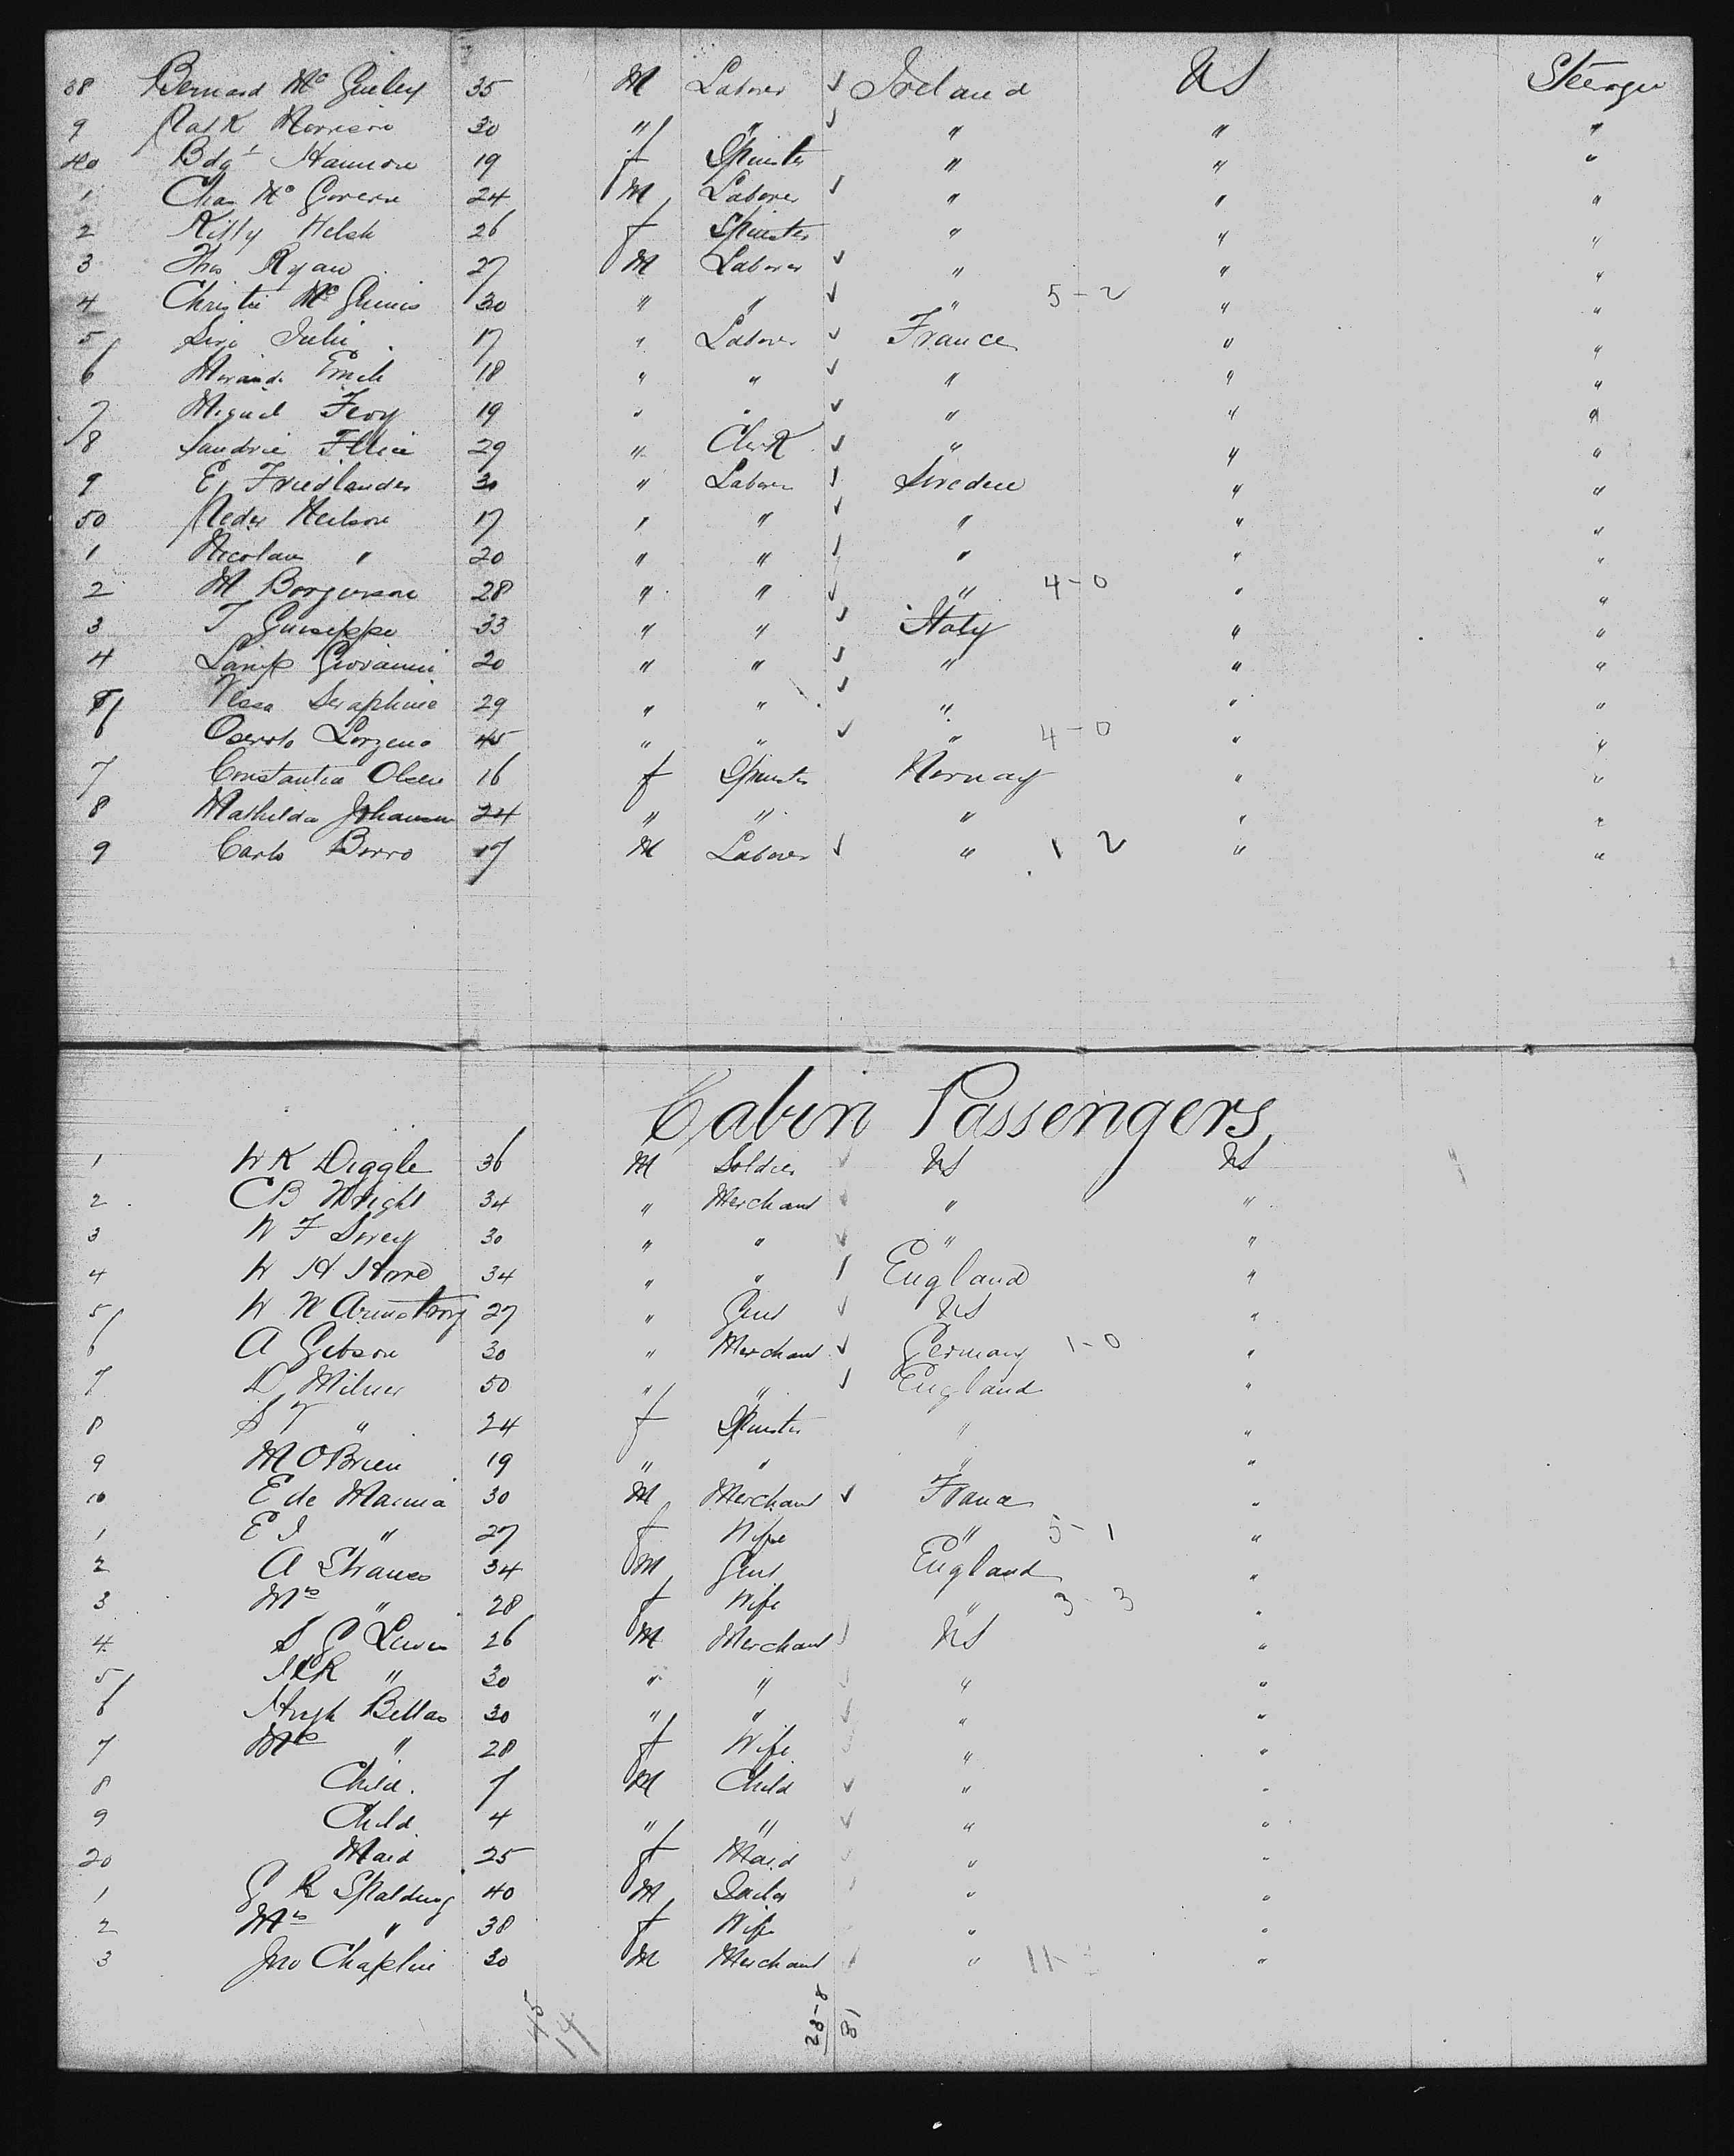 38 Bernard Mc Ginley 35 M Laborer ✓ Ireland US Steerage
9 Patk Morrison 30 " " ✓ " " "
40 Bdgt Hannon 19 f Spinster " " "
1 Chas Mc Govern 24 M Laborer ✓ " " "
2 Kitty Welsh 26 f Spinster " " "
3 Thos Ryan 27 M Laborer ✓ " " "
4 Christie Mc Ginnis 30 " " ✓ " 5-2 " "
5 Julie 17 " Laborer ✓ France " "
6 Morand Emile 18 " " ✓ " " "
7 Miguel Feoy 19 " " ✓ " " "
8 Sandrie Felicie 29 " Clerk ✓ " " "
9 E, Friedlander 30 " Laborer ✓ Sweden " "
50 Peder Neilson 17 " " ✓ " " "
1 Nicolaus " 20 " " ✓ " " "
2 M Borgerson 28 " " ✓ " 4-0 " "
3 T Guiseppe 33 " " ✓ Italy " "
4 Giovanni 20 " " ✓ " " "
5 Seraphine 29 " " ✓ " " "
6 Lorzeno 45 " " ✓ " 4-0 " "
7 Constantia Olsen 16 f Spinster Norway " "
8 Mathilda Johansen 24 " " " " "
9 Carlo Borro 17 M Laborer ✓ " 1 2 " "
Cabin Passengers,
1 W K Diggle 36 M Soldier ✓ US US
2 C B Wright 34 " Merchant ✓ " "
3 W F Sorey 30 " " ✓ " "
4 W H Horne 34 " " ✓ England "
5 W N Armstrong 27 " Gent ✓ US "
6 A Gibson 30 " Merchant ✓ Germany 1-0 "
7 D Milner 50 " " ✓ England "
8 S T " 24 f Spinster " "
9 M O'Brien 19 " " " "
10 E de Marma 30 M Merchant ✓ France "
1 E I " 27 f Wife " 5-1 "
2 A Strauss 34 M Gent England "
3 Mrs " 28 f Wife " 3-3 "
4 S G Lewis 26 M Merchant ✓ US "
5 " 30 " " ✓ " "
6 Hugh Bellas 30 " " ✓ " "
7 Mrs " 28 f Wife " "
8 Child. 7 M Child ✓ " "
9 Child 4 " " ✓ " "
20 Maid 25 f Maid " "
1 G R Spalding 40 M " "
2 Mrs " 38 f Wife " "
3 Jno Chaplin 30 M Merchant ✓ " 11- "
45
14
28-8
81